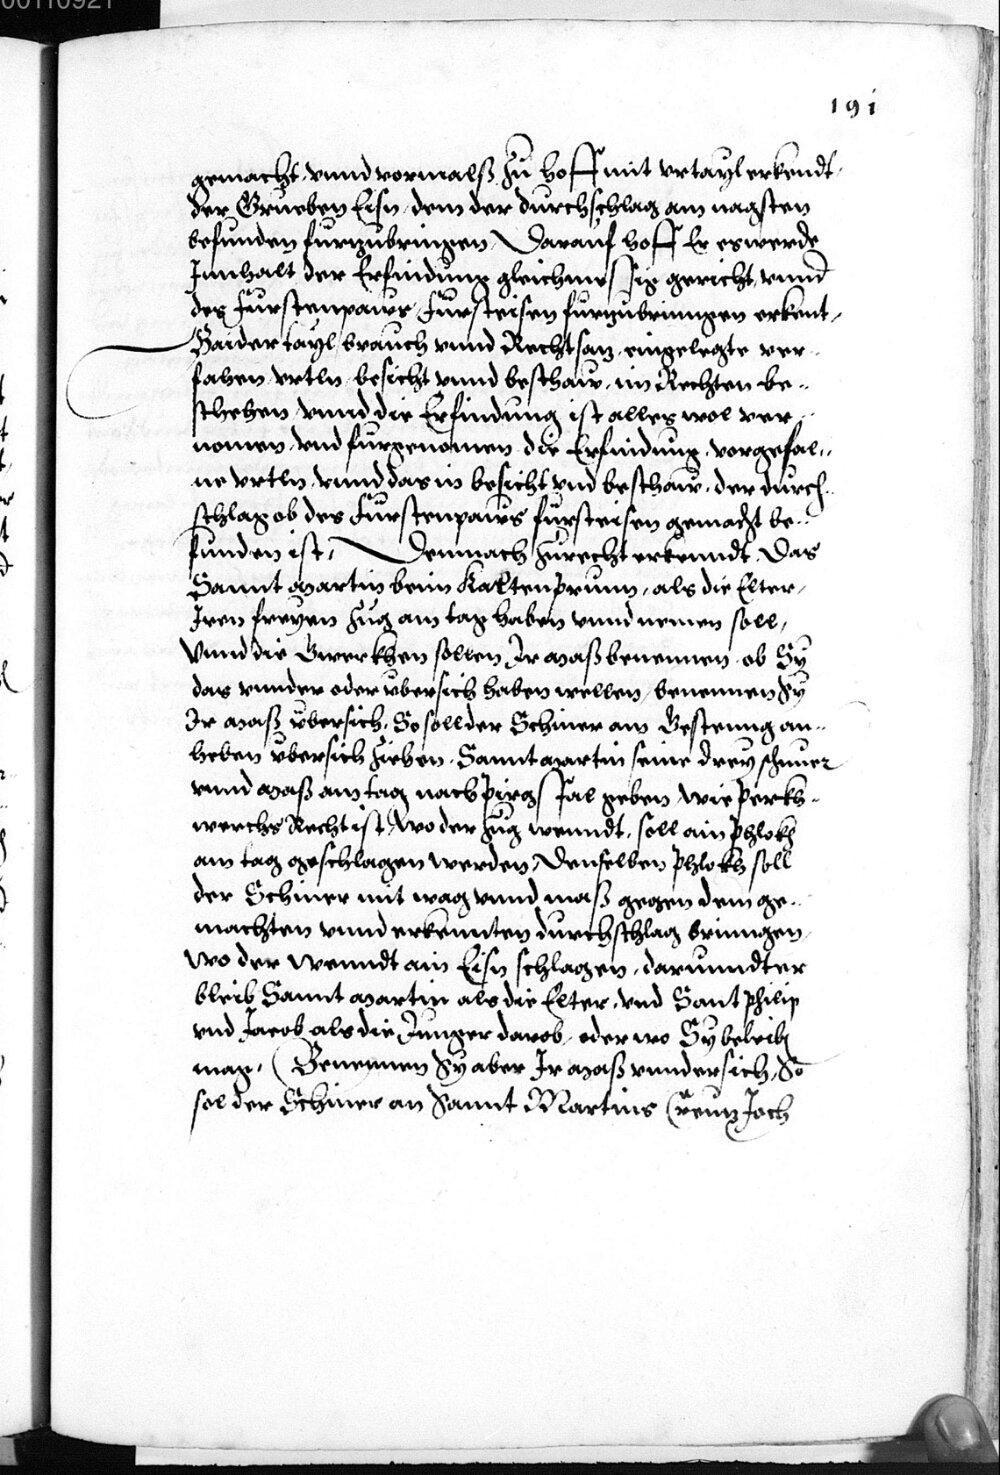 00110921
191
gemacht, vnnd vormalß zu hoff mit vrtayl erkendt,
der Grueben Eisn, dem der durchschlag am nagsten
befunden furzubringen, Darauf hoff Er es werde
Innhalt der Erfindung gleichmessig gericht, vnnd
des Furstenpaws Fürsteisen furzubringen erkent,
Baider tayl brauch vnnd Rechtsaz, eingelegte ver-
fahen vrtln, besicht vnnd beschaw, im Rechten be-
schehen, vnnd die Erfindung ist alles wol ver-
nomen, vnd furgenomen, die Erfindung, vorgefal-
ne vrtln, vnnd das in besicht vnd beschaw, der durch-
schlag ob des Furstenpaws fürsteisen gemacht be-
funden ist, Demnach zurecht erkenndt, Das
Sannt Martin beim Kaltenprunn, als die Elter,
Iren freyen zug am tag haben vnnd nemen soll,
Vnnd die Gwerkhen sollen Ir maß benennen, ob Sy
das vnnder oder vbersich haben wellen, benennen Sy
Ir maß vbersich, So soll der Schiner am Gesteung an-
heben vbersich ziehen, Sannt Martin seine drey schnuer
vnnd maß am tag nach pirgssal geben, wie perkh-
werchs Recht ist, wo der zug wenndt, soll ain phlokh
am tag geschlagen werden, Denselben phlokh soll
der Schiner mit wag vnnd maß gegen dem ge-
machten vnnd erkennten durchschlag bringen,
wo der wenndt ain Eisn schlagen, darunndter
bleib Sannt Martin als die Elter, vnd Sant philip
vnd Jacob, als die Junger darob, oder wo Sy beleibn
mag, Benennen Sy aber Ir maß vnndersich, So
sol der Schiner an Sannt Martins Creuz Joch